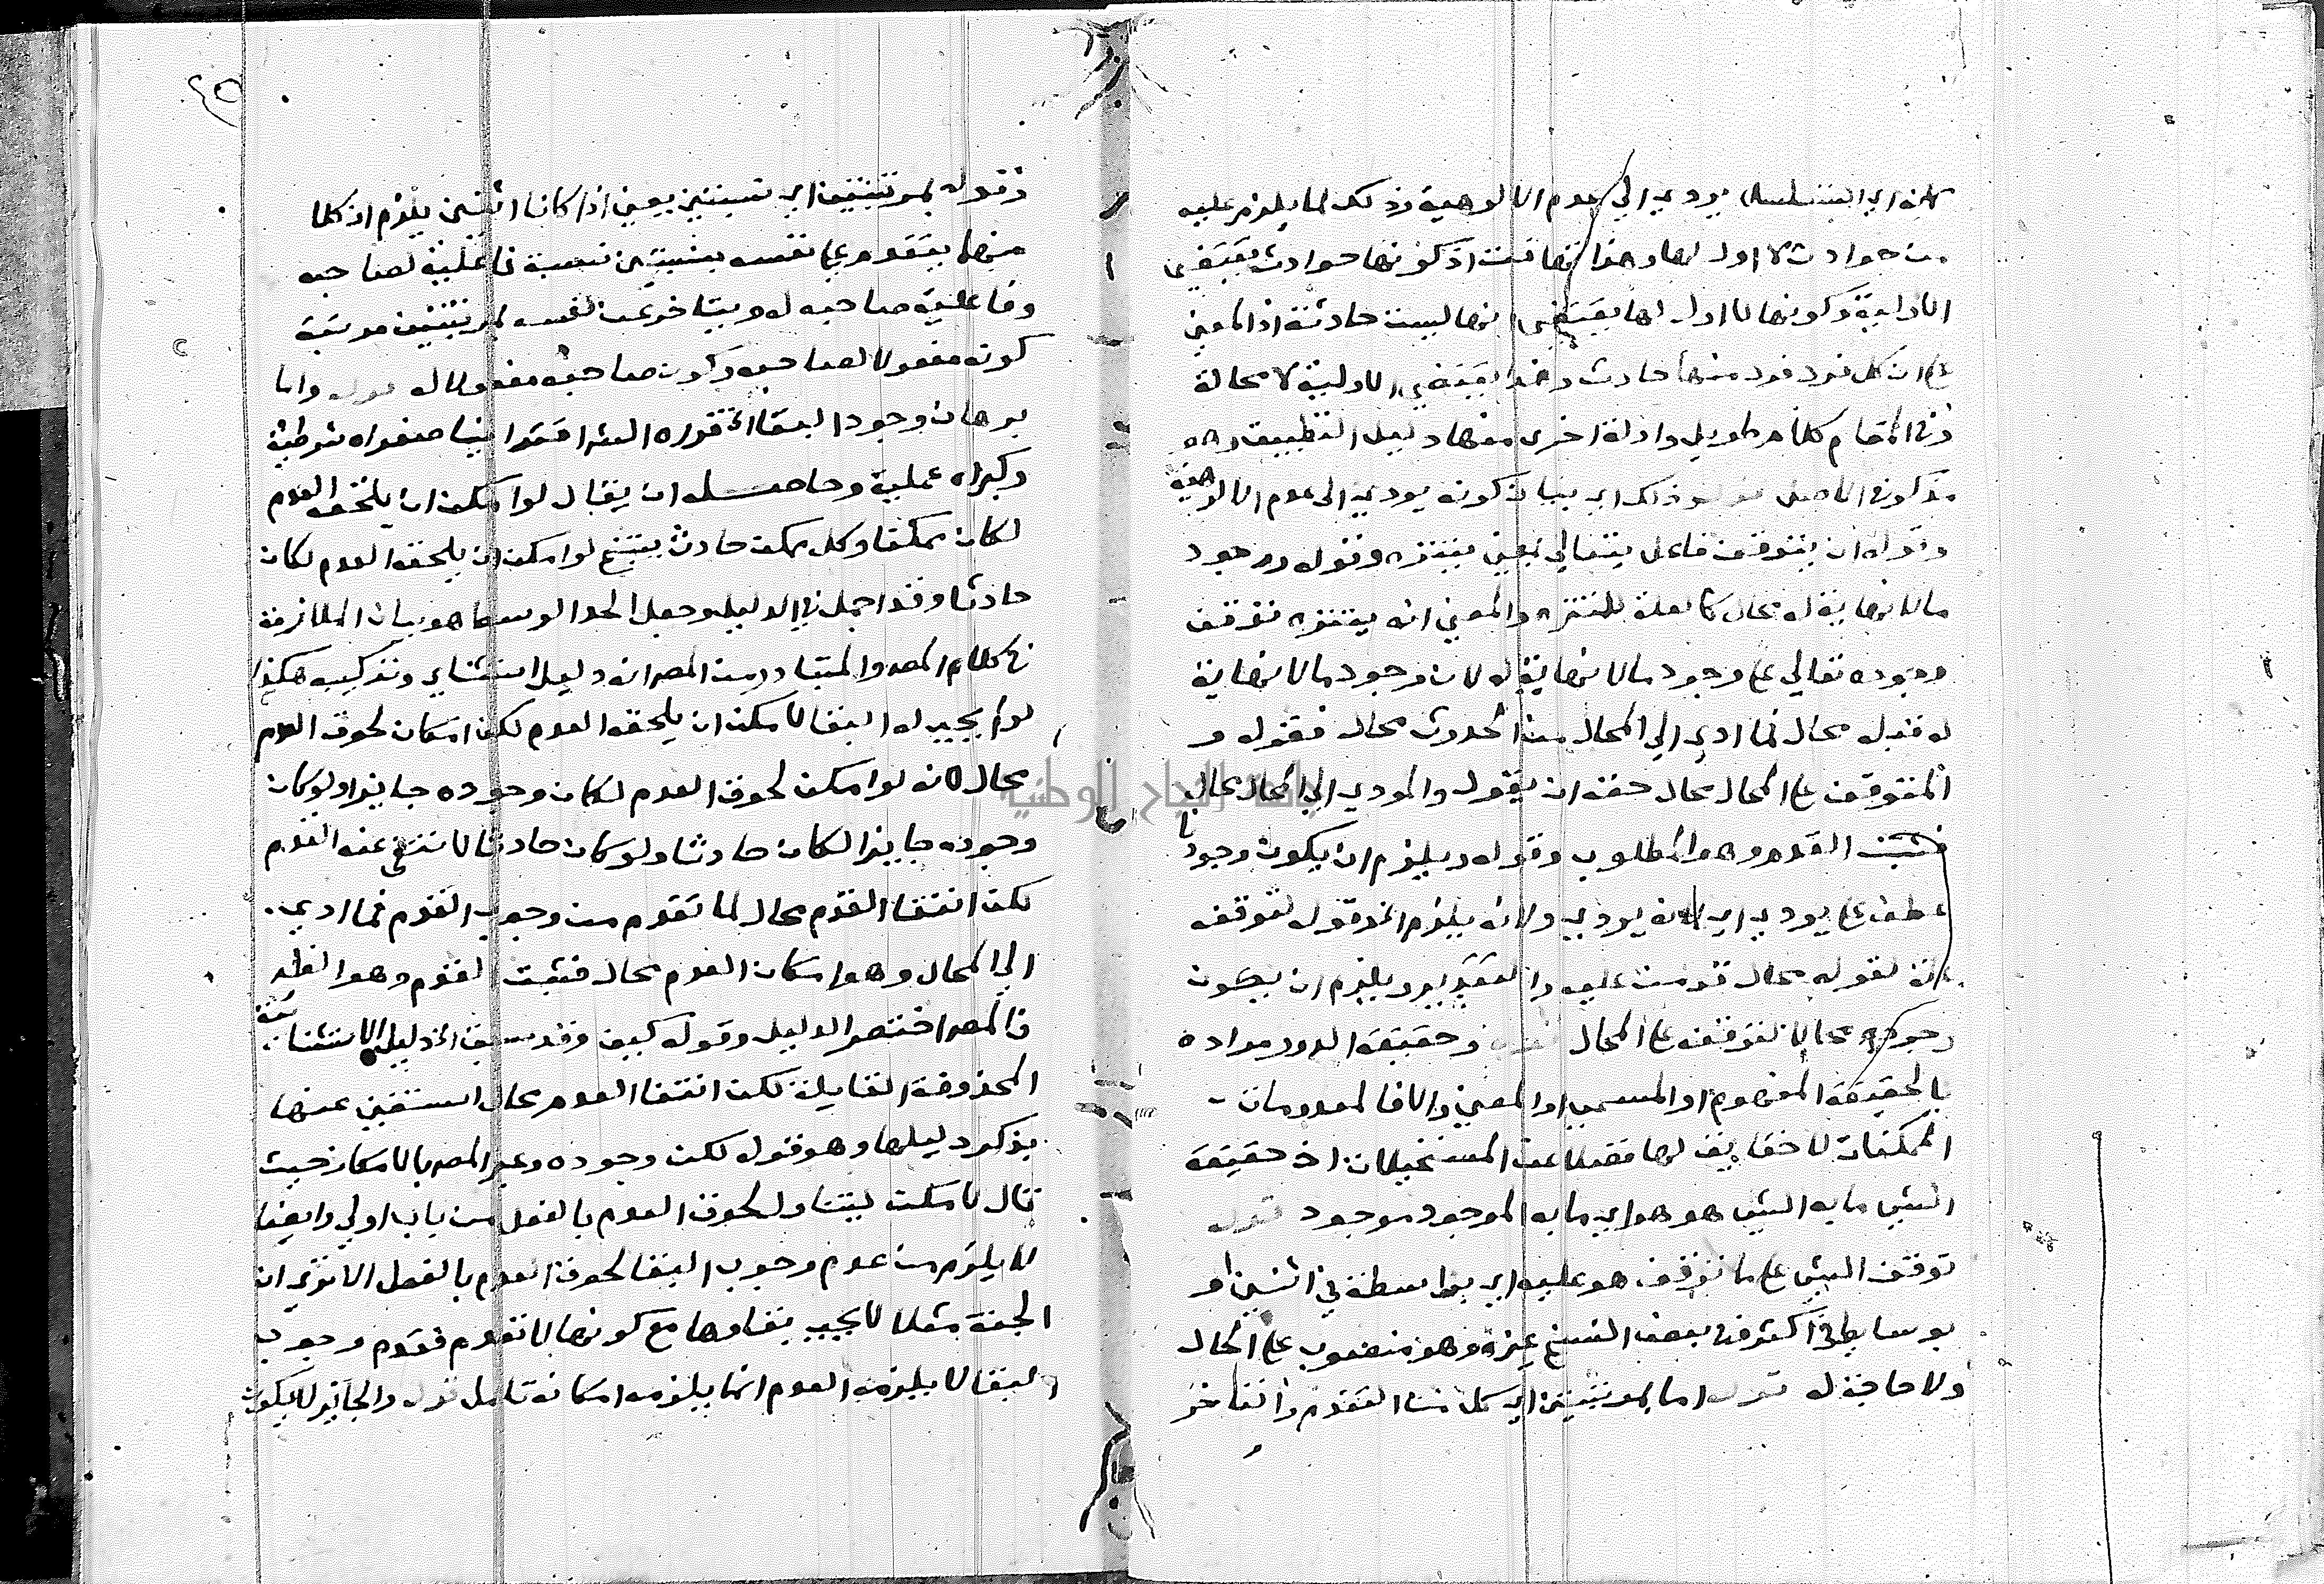 لانه اي التسلسل يودي الي عدم الالوهية وذلك لما يلزم عليه
من حوادث لا اول لها وهذا تهافت اذ كونها حوادث يقتضي
الاولية وكونها لا اول لها يقتضي انها ليست حادثة اذ المعني
ع ان كل فرد فرد منها حادث وهذا يقتضي الاولية لا محالة
وفي المقام كلام طويل وادلة اخري منها دليل التطبيق وهو
مذكور في الاصل قوله وذلك اي بيان كونه يودي الي عدم الالوهية
وقوله ان يتوقف فاعل يتعالي بمعني يتنزه وقوله ووجود
مالانهاية له محال كالعلة للتنزه والمعني انه يتنزه توقف
وجوده تعالي ع وجود مالانهاية له لان وجود مالانهاية
له قبله محال فما ادي الي المحال من الحدوث محال فقوله و
المتوقف ع المحال محال حقه ان يقول والمودي الي المحال محال
فثبت القدم وهو المطلوب وقوله ويلزم ان يكون وجود
عطف ع يودي اي لانه يودي ولانه يلزم الخ وقوله لتوقفه
علة لقوله محال قدمت عليه والتقدير ويلزم ان يكون
وجوده محالا لتوقفه ع المحال قوله وحقيقة الدور مراده
بالحقيقة المفهوم او المسمي او المعني والا فالمعدومات
الممكنات لا حقايق لها فضلا عن المستحيلات اذ حقيقة
الشي ما به الشي هو هو اي ما به الموجود موجود قوله
توقف الشي ع ما توقف هو عليه اي بواسطة في اثنين او
بوسايط في اكثر في بعض النسخ عنه وهو منصوب ع الحال
ولا حاجة له قوله اما بمرتبتين اي كل من التقدم والتاخر
وقوله بمرتبتين اي نسبتين يعني اذا كانا اثنين يلزم ان كلا
منهما يتقدم ع نفسه بنسبتين نسبة فاعلية لصاحبه
وفاعلية صاحبه له ويتاخر عن نفسه بمرتبتين مرتبة
كونه مفعولا لصاحبه وكون صاحبه مفعولا له قوله واما
برهان وجود البقا الخ قرره الش اقترانيا صغراه شرطية
وكبراه حملية وحاصله ان يقال لو امكن ان يلحقه العدم
لكان ممكنا وكل ممكن حادث ينتج لو امكن ان يلحقه العدم لكان
حادثا وقد اجمل في الدليل وجعل الحد الوسط هو بيان الملازمة
في كلام المص والمتبادر من المص انه دليل استثناي وتركيبه هكذا
لو لم يجب له البقا لامكن ان يلحقه العدم لكن امكان لحوق العدم
محال لانه لو امكن لحوق العدم لكان وجوده جايزا ولو كان
وجوده جايزا لكان حادثا ولو كان حادثا لانتفي عنه القدم
لكن انتفا القدم محال لما تقدم من وجوب القدم فما ادي
الي المحال وهو امكان العدم محال فثبت القدم وهو المط
فالمص اختصر الدليل وقوله كيف وقد سبق الخ دليل الاستثنائية
المحذوفة القايلة لكن انتفا العدم محال استغني عنها
بذكر دليلها وهو قوله لكن وجوده وعبر المص بالامكان حيث
قال لامكن ليتناول لحوق العدم بالفعل من باب اولي وايضا
لا يلزم من عدم وجوب البقا لحوق العدم بالفعل الا تري ان
الجنة مثلا لا يجب بقاوها مع كونها لا تعدم فعدم وجوب
البقا لا يلزمه العدم انما يلزمه امكانه تامل قوله والجايز لا يكون
جامعة النجاح الوطنية